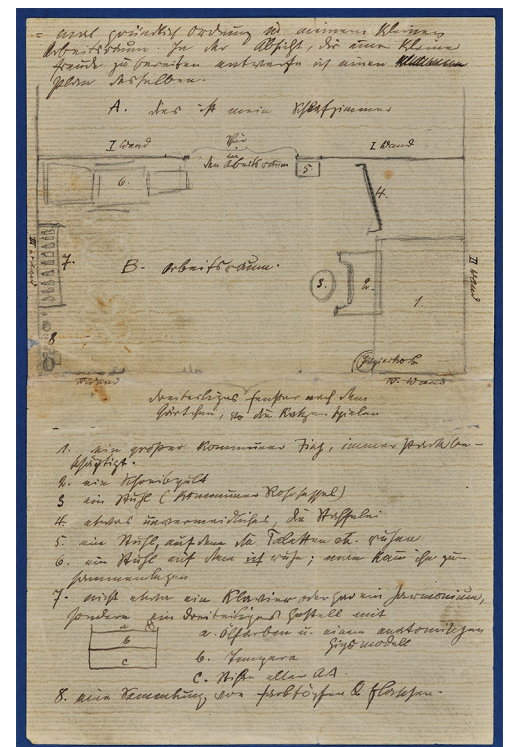 = mal gründlich Ordnung in meinem kleinen
Arbeitsraum. In der Absicht, dir eine kleine
Freude zu bereiten entwerfe ich einen
plan desselben.
A. dies ist mein Schlafzimmer
I Wand
Tür
in
den Arbeitsraum
I Wand
5
6.
4.
III Wand
7.
B. Arbeitsraum.
3.
2.
1.
II Wand
8
Papierkorb
IV. Wand
IV. Wand
dreiteiliges Fenster nach dem
Gärtchen, wo die Katzen spielen
1. ein großer Tisch, immer
2. ein Schreibpult
3 ein Stuhl
4. etwas unvermeidliches, die Staffelei
5. ein Stuhl auf dem die Paletten etc. ruhen
6. ein Stuhl auf dem ich ruhe; man kann ihn zu-
sammenlegen
7. nicht etwa ein Klavier oder gar ein Harmonium,
sondern ein dreiteiliges Gestell mit
a
b
c
a. Ölfarben u. einem anatomischen
Gipsmodell
b. Tempera
c. aller Art
8. eine Sammlung von Farbtöpfen & Flaschen.